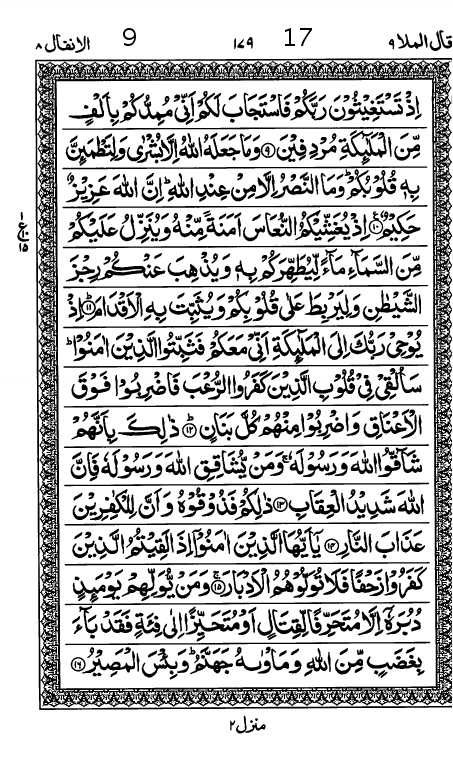 قال الملا ٩ 17 ١٧٩ 9 الانفال ٨
اِذْ تَسْتَغِيْثُوْنَ رَبَّكُمْ فَاسْتَجَابَ لَكُمْ اَنِّيْ مُمِدُّكُمْ بِاَلْفٍ
مِّنَ الْمَلٰٓئِكَةِ مُرْدِفِيْنَ ۹ وَمَا جَعَلَهُ اللّٰهُ اِلَّا بُشْرٰى وَلِتَطْمَئِنَّ
بِهٖ قُلُوْبُكُمْ ۚ وَمَا النَّصْرُ اِلَّا مِنْ عِنْدِ اللّٰهِ ؕ اِنَّ اللّٰهَ عَزِيْزٌ
حَكِيْمٌ ۱۰ اِذْ يُغَشِّيْكُمُ النُّعَاسَ اَمَنَةً مِّنْهُ وَيُنَزِّلُ عَلَيْكُمْ
مِّنَ السَّمَآءِ مَآءً لِّيُطَهِّرَكُمْ بِهٖ وَيُذْهِبَ عَنْكُمْ رِجْزَ
الشَّيْطٰنِ وَلِيَرْبِطَ عَلٰى قُلُوْبِكُمْ وَيُثَبِّتَ بِهِ الْاَقْدَامَ ؕ ۱۱ اِذْ
يُوْحِيْ رَبُّكَ اِلَى الْمَلٰٓئِكَةِ اَنِّيْ مَعَكُمْ فَثَبِّتُوا الَّذِيْنَ اٰمَنُوْا ؕ
سَاُلْقِيْ فِيْ قُلُوْبِ الَّذِيْنَ كَفَرُوا الرُّعْبَ فَاضْرِبُوْا فَوْقَ
الْاَعْنَاقِ وَاضْرِبُوْا مِنْهُمْ كُلَّ بَنَانٍ ؕ ۱۲ ذٰلِكَ بِاَنَّهُمْ
شَآقُّوا اللّٰهَ وَرَسُوْلَهٗ ۚ وَمَنْ يُّشَاقِقِ اللّٰهَ وَرَسُوْلَهٗ فَاِنَّ
اللّٰهَ شَدِيْدُ الْعِقَابِ ۱۳ ذٰلِكُمْ فَذُوْقُوْهُ وَاَنَّ لِلْكٰفِرِيْنَ
عَذَابَ النَّارِ ۱۴ يٰۤاَيُّهَا الَّذِيْنَ اٰمَنُوْۤا اِذَا لَقِيْتُمُ الَّذِيْنَ
كَفَرُوْا زَحْفًا فَلَا تُوَلُّوْهُمُ الْاَدْبَارَ ۚ ۱۵ وَمَنْ يُّوَلِّهِمْ يَوْمَئِذٍ
دُبُرَهٗۤ اِلَّا مُتَحَرِّفًا لِّقِتَالٍ اَوْ مُتَحَيِّزًا اِلٰى فِئَةٍ فَقَدْ بَآءَ
بِغَضَبٍ مِّنَ اللّٰهِ وَمَاْوٰىهُ جَهَنَّمُ ؕ وَبِئْسَ الْمَصِيْرُ ۱۶
منزل ٢